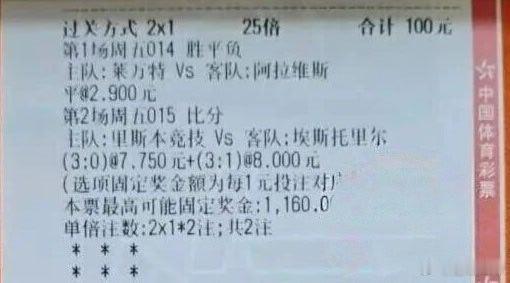 过关方式 2x1 25倍 合计 100元
第1场周五014 胜平负
主队:莱万特 Vs 客队:阿拉维斯
平@2.900元
第2场周五015 比分
主队:里斯本竞技 Vs 客队:埃斯托里尔
(3:0)@7.750元+(3:1)@8.000元
(选项固定奖金额为每1元投注对
本票最高可能固定奖金:1,160.0
单倍注数:2x1*2注;共2注
* * *
* * *
中国体育彩票